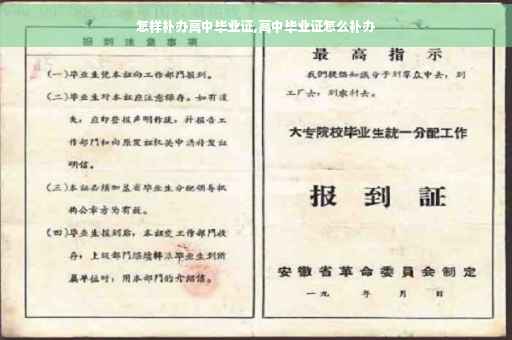 怎样补办高中毕业证,高中毕业证怎么补办
报到注意事项
(一)毕业生凭本证向工作部门报到。
(二)毕业生对本证应注意保存。如有遗
失,应即登报声明作废,并报告工
作部门和向原发证机关申请补发证
明信。
(三)本证必须加盖省毕业生分配领导机
构公章方为有效。
(四)毕业生报到后,本证交工作部门收
存;上级部门继续转派毕业生到所
属单位时,用本部门的介绍信。
最高指示
我们提倡知识分子到群众中去,到
工厂去,到农村去。
大专院校毕业生统一分配工作
报到証
安徽省革命委员会制定
一九 年 月 日